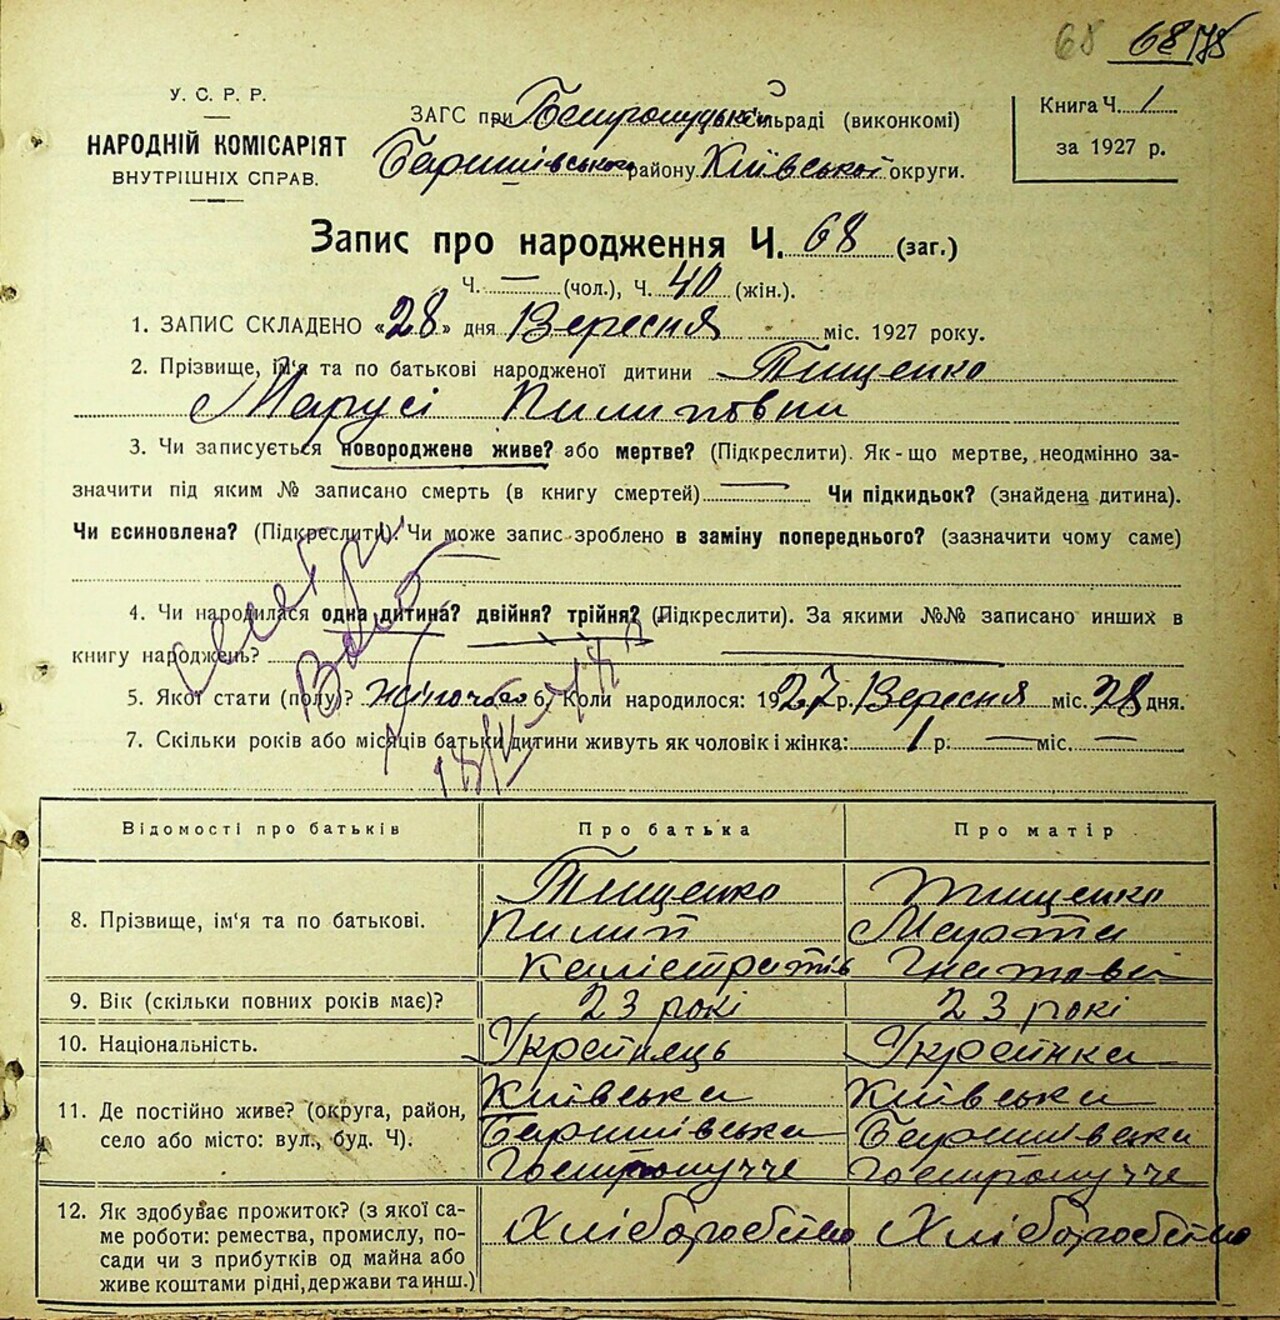 68 68 78
У. С. Р. Р.
НАРОДНІЙ КОМІСАРІЯТ
ВНУТРІШНІХ СПРАВ.
ЗАГС при Гостролуцькій сільраді (виконкомі)
Баришівського району Київської округи.
Книга Ч. 1
за 1927 р.
Запис про народження Ч. 68 (заг.)
Ч. — (чол.), Ч. 40 (жін.).
1. ЗАПИС СКЛАДЕНО «28» дня Вересня міс. 1927 року.
2. Прізвище, ім'я та по батькові народженої дитини Тищенко
Марусі Пилиповни
3. Чи записується новороджене живе? або мертве? (Підкреслити). Як-що мертве, неодмінно за-
значити під яким № записано смерть (в книгу смертей) — Чи підкидьок? (знайдена дитина).
Чи єсиновлена? (Підкреслити). Чи може запис зроблено в заміну попереднього? (зазначити чому саме)
4. Чи народилася одна дитина? двійня? трійня? (Підкреслити). За якими №№ записано инших в
книгу народжень?
5. Якої стати (полу)? жіночого 6. Коли народилося: 1927 р. Вересня міс. 28 дня.
7. Скільки років або місяців батьки дитини живуть як чоловік і жінка: 1 р. — міс. —
Відомості про батьків Про батька Про матір
8. Прізвище, ім'я та по батькові.
Тищенко Тищенко
Пилип Марта
Калістратів Гнатова
9. Вік (скільки повних років має)? 23 рокі 23 рокі
10. Національність. Українець Українка
11. Де постійно живе? (округа, район,
село або місто: вул., буд. Ч).
Київська Київська
Баришівська Баришівська
Гостролуччє Гостролуччє
12. Як здобуває прожиток? (з якої са-
ме роботи: ремества, промислу, по-
сади чи з прибутків од майна або
живе коштами рідні, держави та инш.)
Хліборобство Хліборобство